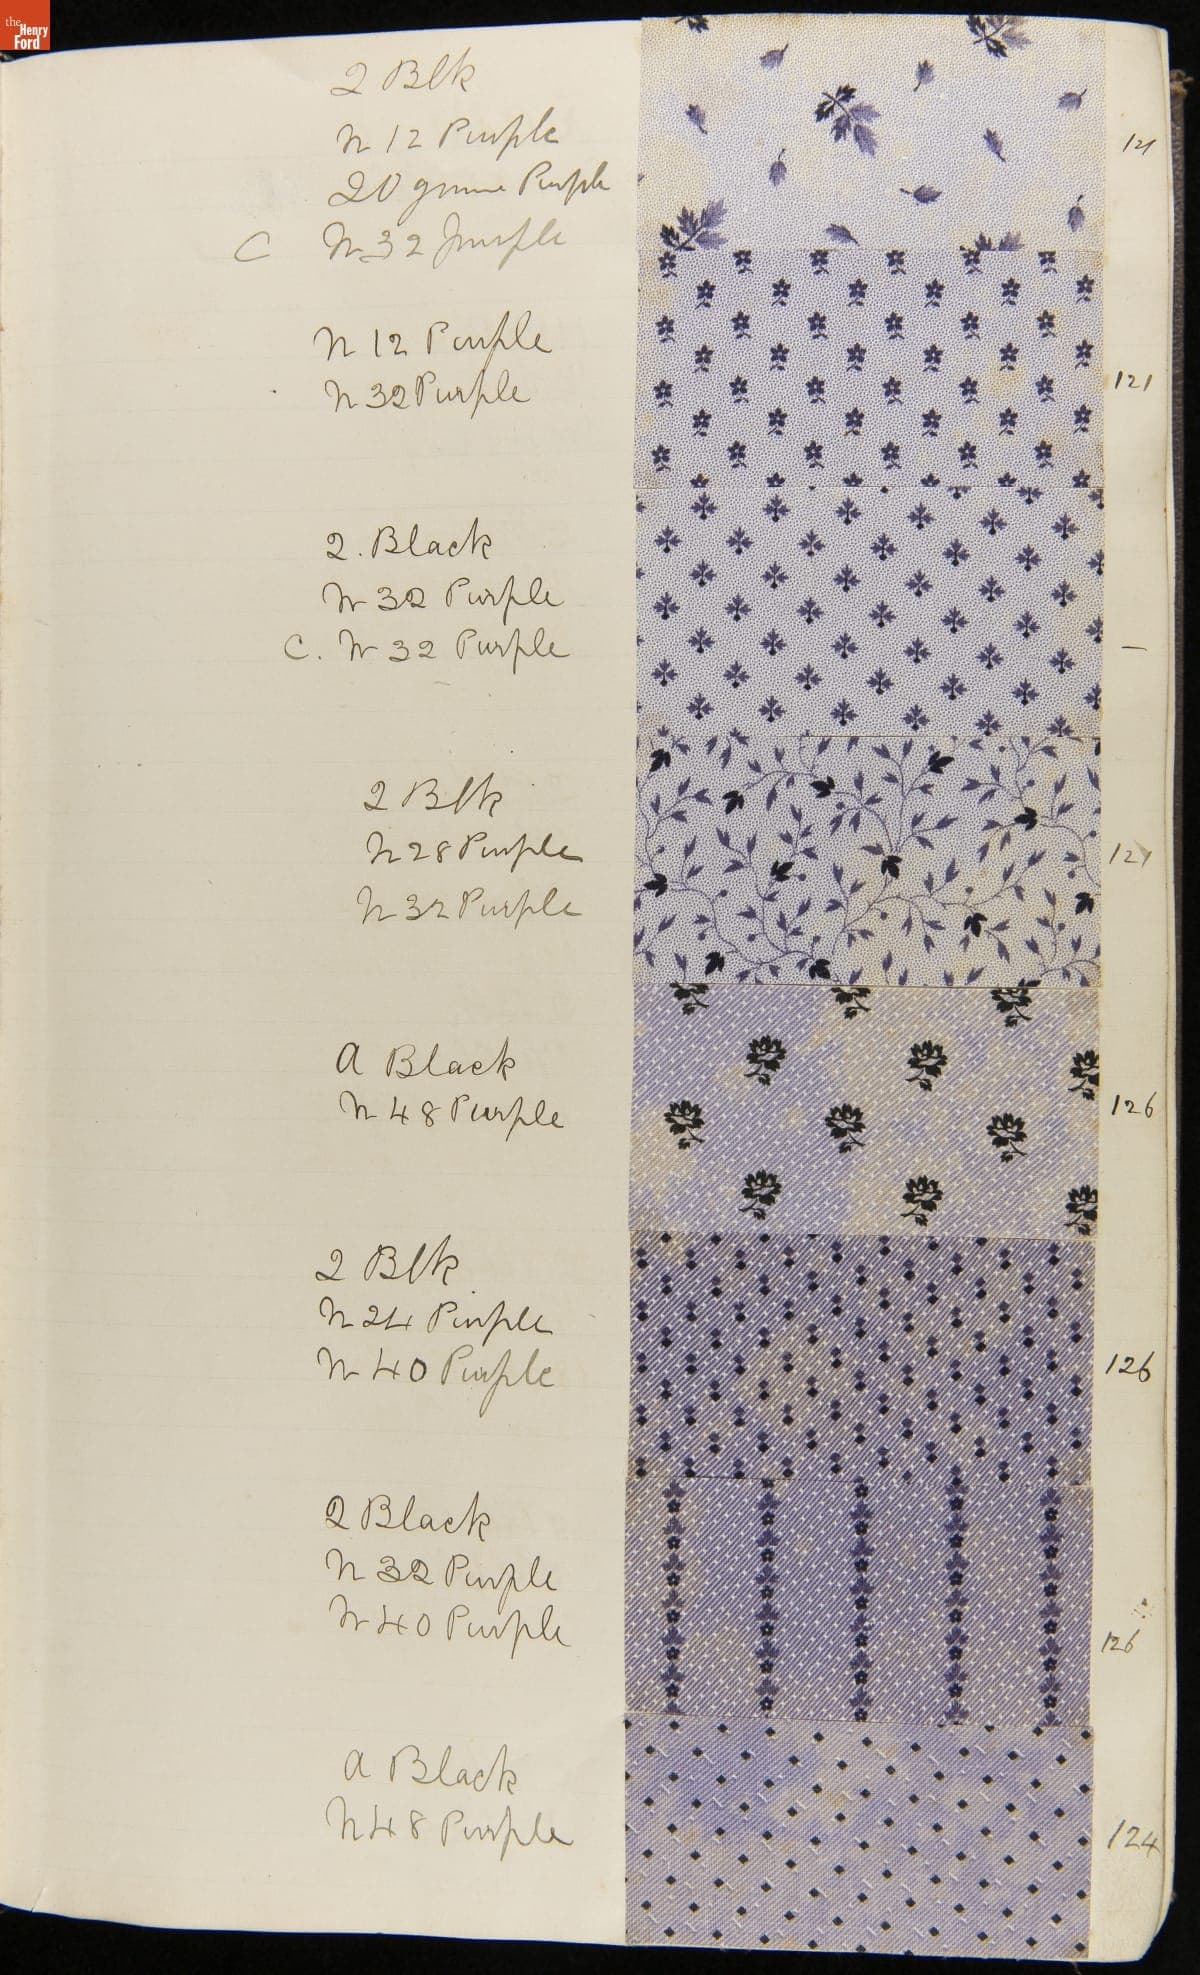 the
Henry
Ford
2 Blk
N 12 Purple
20 gmme Purple
C N 32 Purple
121
N 12 Purple
N 32 Purple
121
2. Black
N 32 Purple
C. N 32 Purple
—
2 Blk
N 28 Purple
N 32 Purple
121
A Black
N 48 Purple
126
2 Blk
N 24 Purple
N 40 Purple
126
2 Black
N 32 Purple
N 40 Purple
126
A Black
N 48 Purple
124